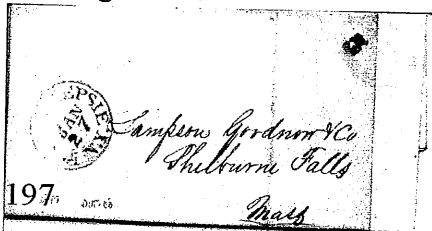 EPSIE
JAN
27
Lampson Goodnow & Co
Shelburne Falls
Mass
197